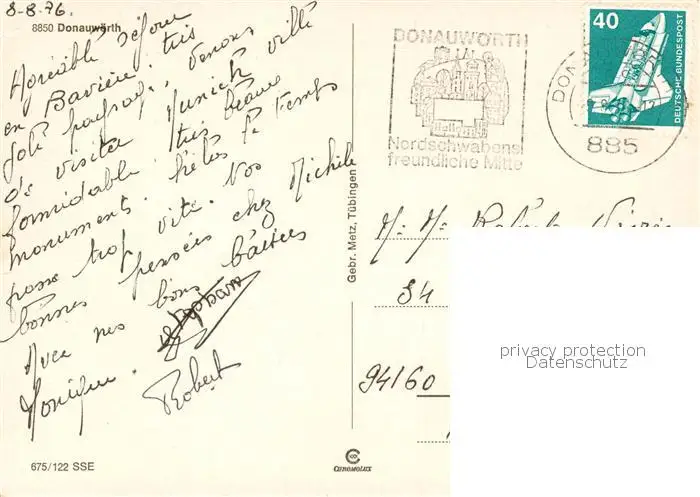 8-8-76.
8850 Donauwörth
Agréable séjour
en Bavière. très
joli paysage, venons
de visiter Munich ville
formidable. très beaux
monuments. hélas le temps
passe trop vite. Nos
bonnes pensées chez Michèle
Avec nos bons baisers
Monique.
Robert
675/122 SSE
Gebr. Metz, Tübingen
CHROMOLUX
DONAUWÖRTH
Nordschwabens
freundliche Mitte
40
DEUTSCHE BUNDESPOST
885
M. M. Robert
94160
privacy protection
Datenschutz